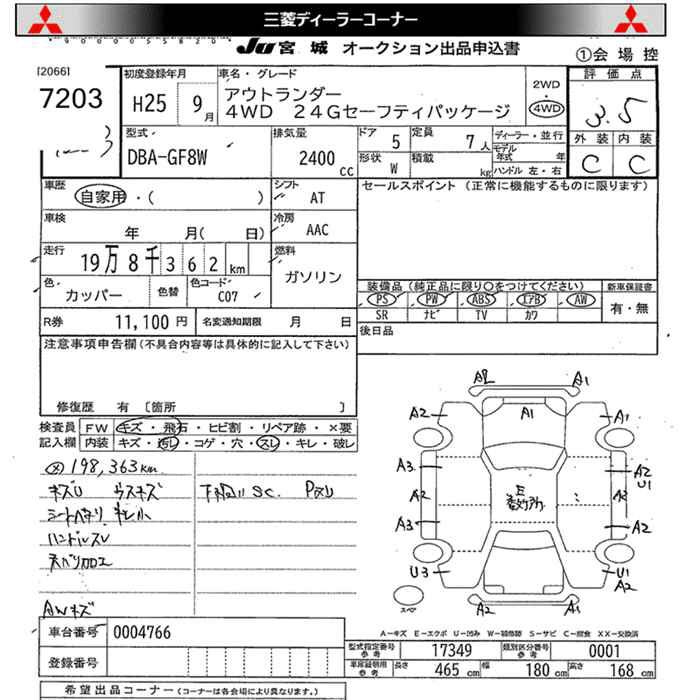 三菱ディーラーコーナー
JU 宮城 オークション出品申込書
①会場控
[2066]
7203
初度登録年月
H25 9月
車名・グレード
アウトランダー
4WD 24Gセーフティパッケージ
2WD
・
4WD
評価点
3.5
型式
DBA-GF8W
排気量
2400 cc
ドア 5
定員 7人
形状 W
積載 kg
ディーラー・並行
モデル年式 年
ハンドル 左・右
外装 内装
C C
車歴
自家用・( )
シフト
AT
セールスポイント (正常に機能するものに限ります)
車検
年 月( 日)
冷房
AAC
走行
19万8千362km
燃料
ガソリン
色
カッパー
色替
色コード
C07
装備品 (純正品に限り○をつけてください)
新車保証書
PS PW ABS エアB AW
SR ナビ TV カワ
有・無
R券 11,100円
名変通知期限 月 日
後日品
注意事項申告欄(不具合内容等は具体的に記入して下さい)
修復歴 有 [箇所 ]
検査員記入欄
FW キズ・飛石・ヒビ割・リペア跡・×要
内装 キズ・汚レ・コゲ・穴・スレ・キレ・破レ
198,363km
キズU ウスキズ
下廻リSC. PタU
シートヘタリ キレ小
ハンドルスレ
天ハリカロエ
AWキズ
A2 A1
A2 A1 A1
A3 A2 U1
A2 A2
A3 A2
U3 U1 A2
A2 A1
スペ
A-キズ E-エクボ U-凹み W-補修跡 S-サビ C-腐食 XX-交換済
車台番号 0004766
登録番号
型式指定番号 参考 17349
類別区分番号 参考 0001
車庫証明用 参考 長さ 465 cm 幅 180 cm 高さ 168 cm
希望出品コーナー (コーナーは各会場により異なります。)